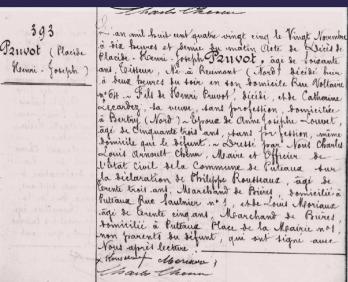 393
Pruvot (Placide
Henri-Joseph)
L'an mil huit cent quatre vingt cinq le Vingt Novembre
à dix heures et demie du matin Acte de Décès de
Placide-Henri-Joseph Pruvot, âgé de soixante
ans, Tisseur, Né à Reumont (Nord) décédé hier
à deux heures du soir, en son domicile Rue Voltaire
n° 68 ~ Fils de Henri Pruvot, décédé, et de Catherine
Lecardez, sa veuve, sans profession, domiciliée
à Bertry (Nord) ~ Epoux de Anne Josephe Louvet,
âgée de Cinquante trois ans, sans profession, même
domicile que le défunt. ~ Dressé par Nous Charles
Louis Arnoult Chenu, Maire et Officier de
l'état Civil de la Commune de Puteaux sur
la déclaration de Philippe Rousseaux, âgé de
trente trois ans, Marchand de Bières, domicilié à
Puteaux Rue Saulnier n° 1, et de Louis Moriaux
âgé de trente cinq ans, Marchand de Bières,
domicilié à Puteaux Place de la Mairie n° 1,
non parents du défunt, qui ont signé avec
Nous après lecture.
Moriaux
Charles Chenu